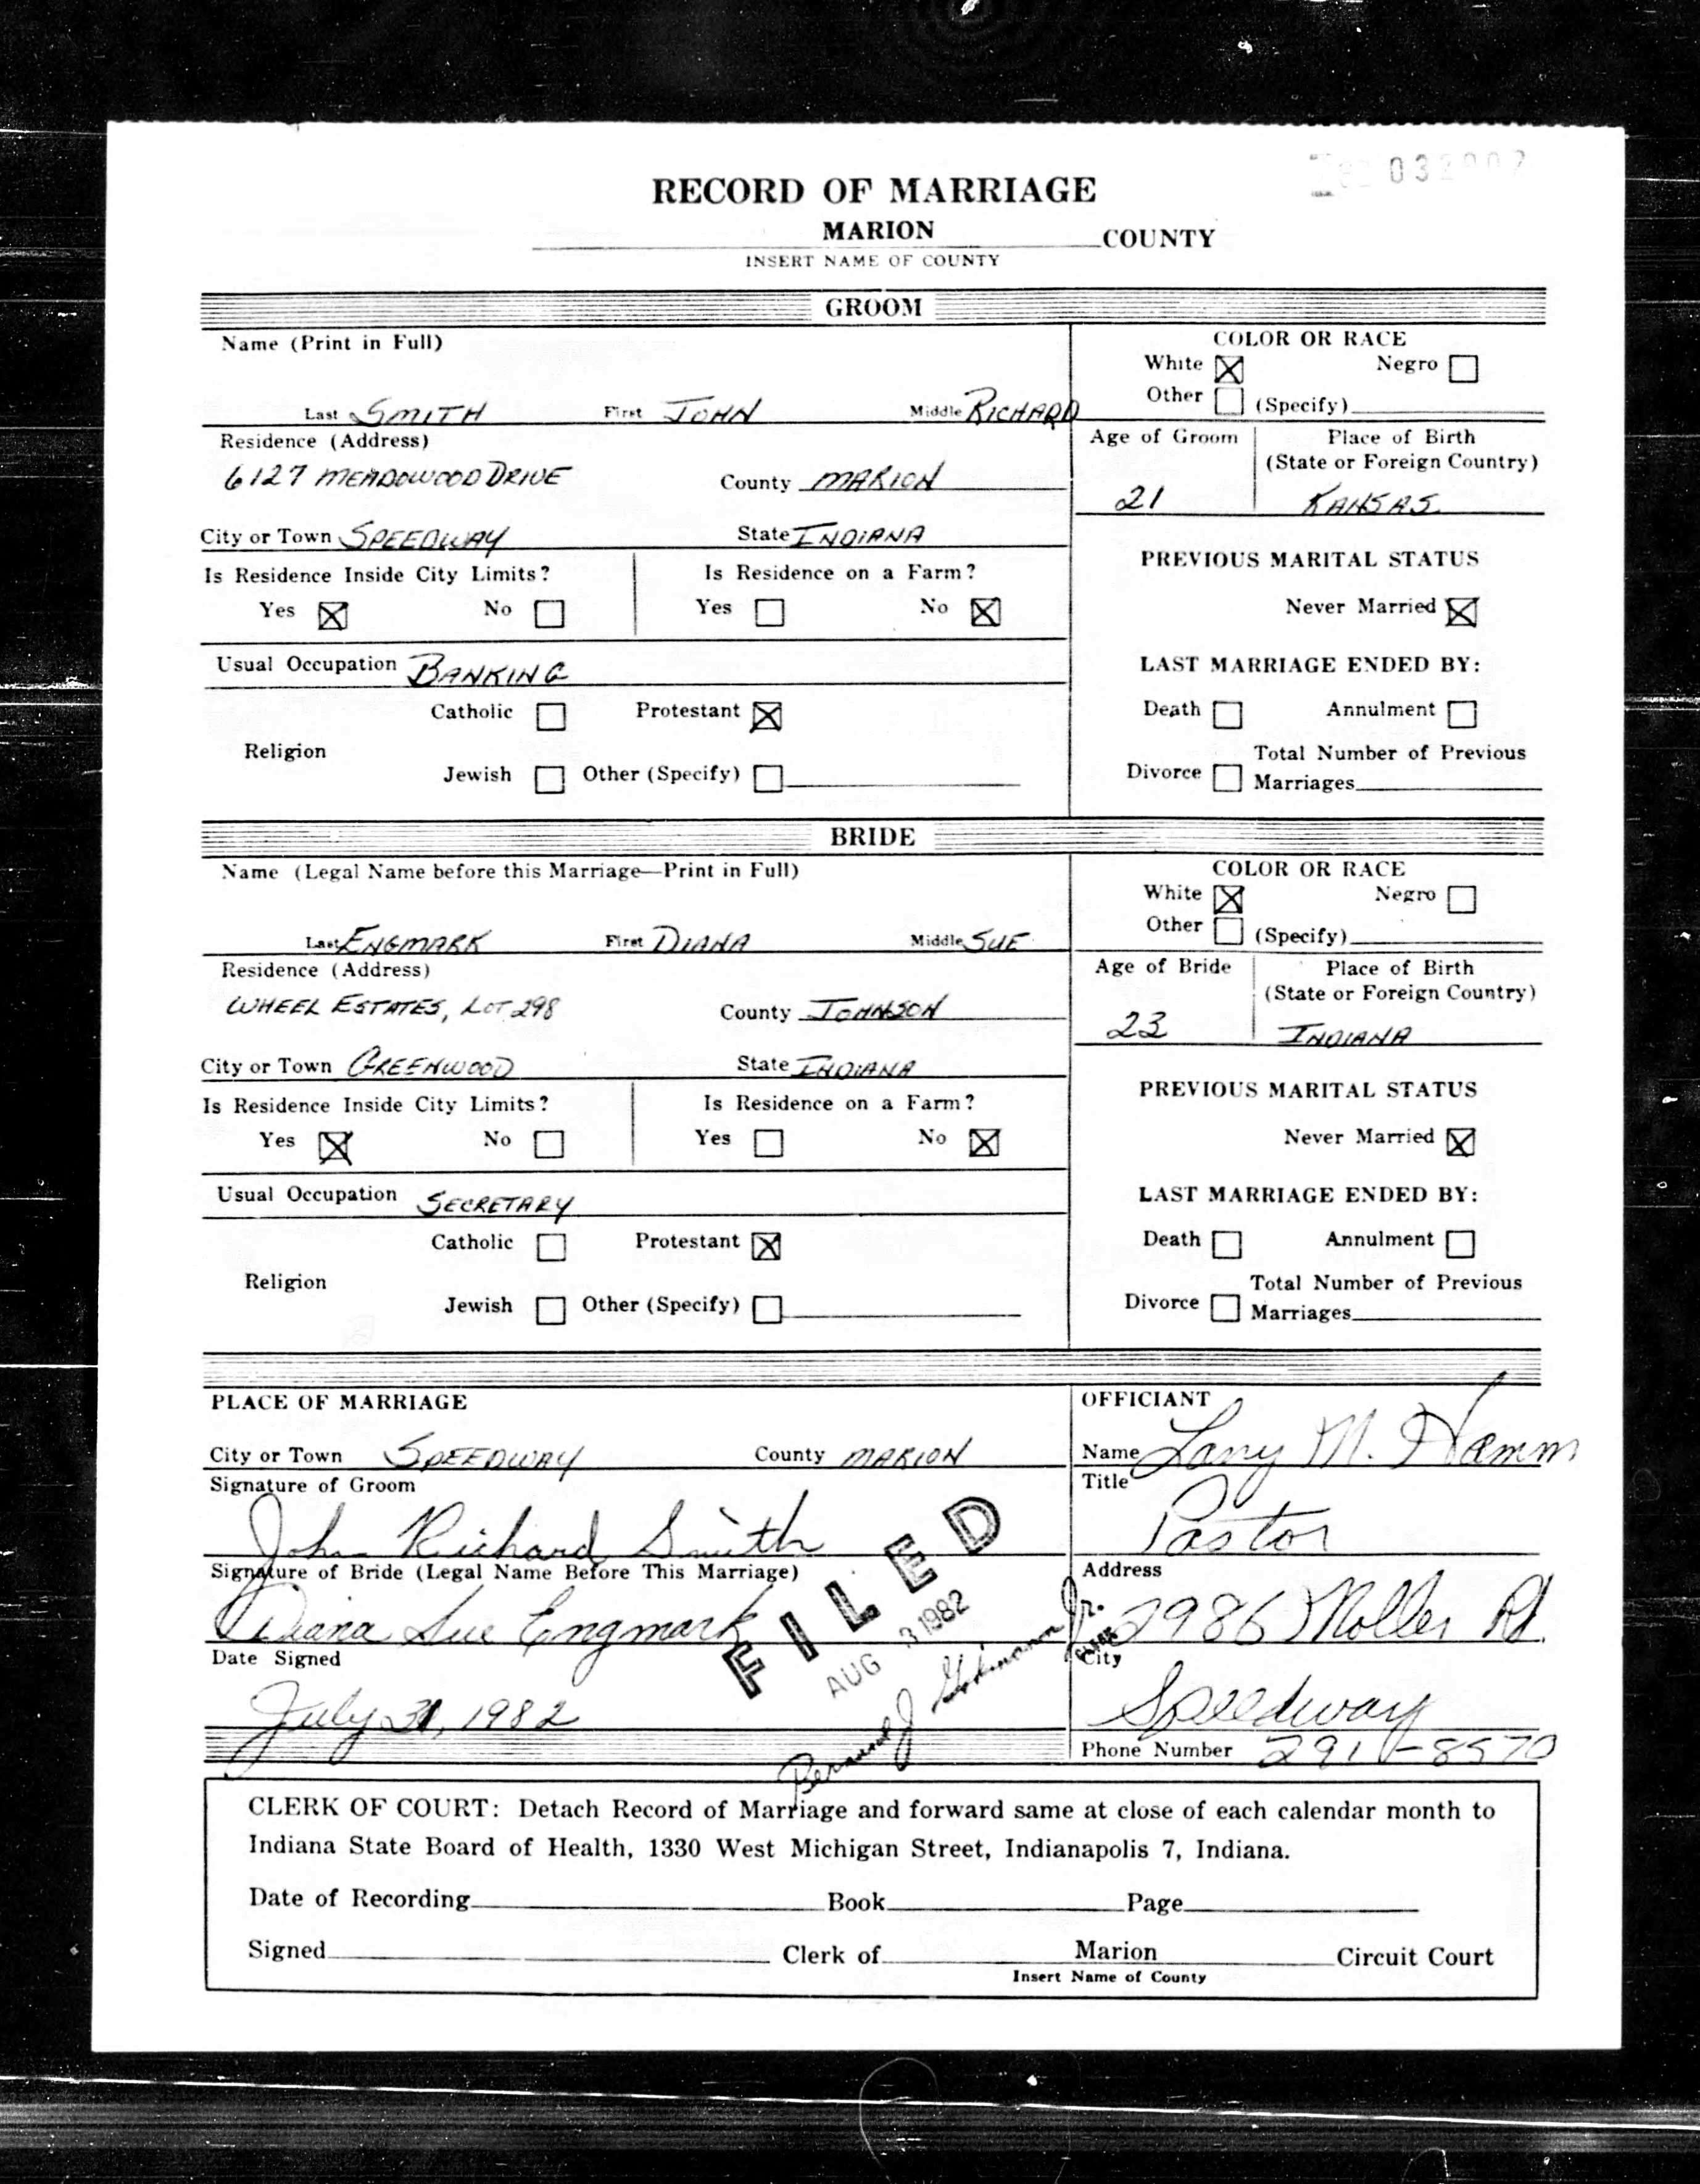 032907
RECORD OF MARRIAGE
MARION COUNTY
INSERT NAME OF COUNTY
GROOM
Name (Print in Full)
Last SMITH First JOHN Middle RICHARD
COLOR OR RACE
White ☒ Negro ☐
Other ☐ (Specify)
Residence (Address)
6127 MEADOWOOD DRIVE County MARION
City or Town SPEEDWAY State INDIANA
Age of Groom
21
Place of Birth
(State or Foreign Country)
KANSAS
Is Residence Inside City Limits?
Yes ☒ No ☐
Is Residence on a Farm?
Yes ☐ No ☒
PREVIOUS MARITAL STATUS
Never Married ☒
Usual Occupation BANKING
LAST MARRIAGE ENDED BY:
Death ☐ Annulment ☐
Divorce ☐ Total Number of Previous
Marriages
Religion
Catholic ☐ Protestant ☒
Jewish ☐ Other (Specify) ☐
BRIDE
Name (Legal Name before this Marriage—Print in Full)
Last ENGMARK First DIANA Middle SUE
COLOR OR RACE
White ☒ Negro ☐
Other ☐ (Specify)
Residence (Address)
WHEEL ESTATES, LOT 298 County JOHNSON
City or Town GREENWOOD State INDIANA
Age of Bride
23
Place of Birth
(State or Foreign Country)
INDIANA
Is Residence Inside City Limits?
Yes ☒ No ☐
Is Residence on a Farm?
Yes ☐ No ☒
PREVIOUS MARITAL STATUS
Never Married ☒
Usual Occupation SECRETARY
LAST MARRIAGE ENDED BY:
Death ☐ Annulment ☐
Divorce ☐ Total Number of Previous
Marriages
Religion
Catholic ☐ Protestant ☒
Jewish ☐ Other (Specify) ☐
PLACE OF MARRIAGE
City or Town SPEEDWAY County MARION
Signature of Groom
John Richard Smith
Signature of Bride (Legal Name Before This Marriage)
Diana Sue Engmark
Date Signed
July 31, 1982
FILED
AUG 3 1982
Bernard J. Jr.
CLERK
OFFICIANT
Name Larry M. Hamm
Title
Pastor
Address
2986 Moller Rd.
City
Speedway
Phone Number 291-8570
CLERK OF COURT: Detach Record of Marriage and forward same at close of each calendar month to
Indiana State Board of Health, 1330 West Michigan Street, Indianapolis 7, Indiana.
Date of Recording Book Page
Signed Clerk of Marion Circuit Court
Insert Name of County